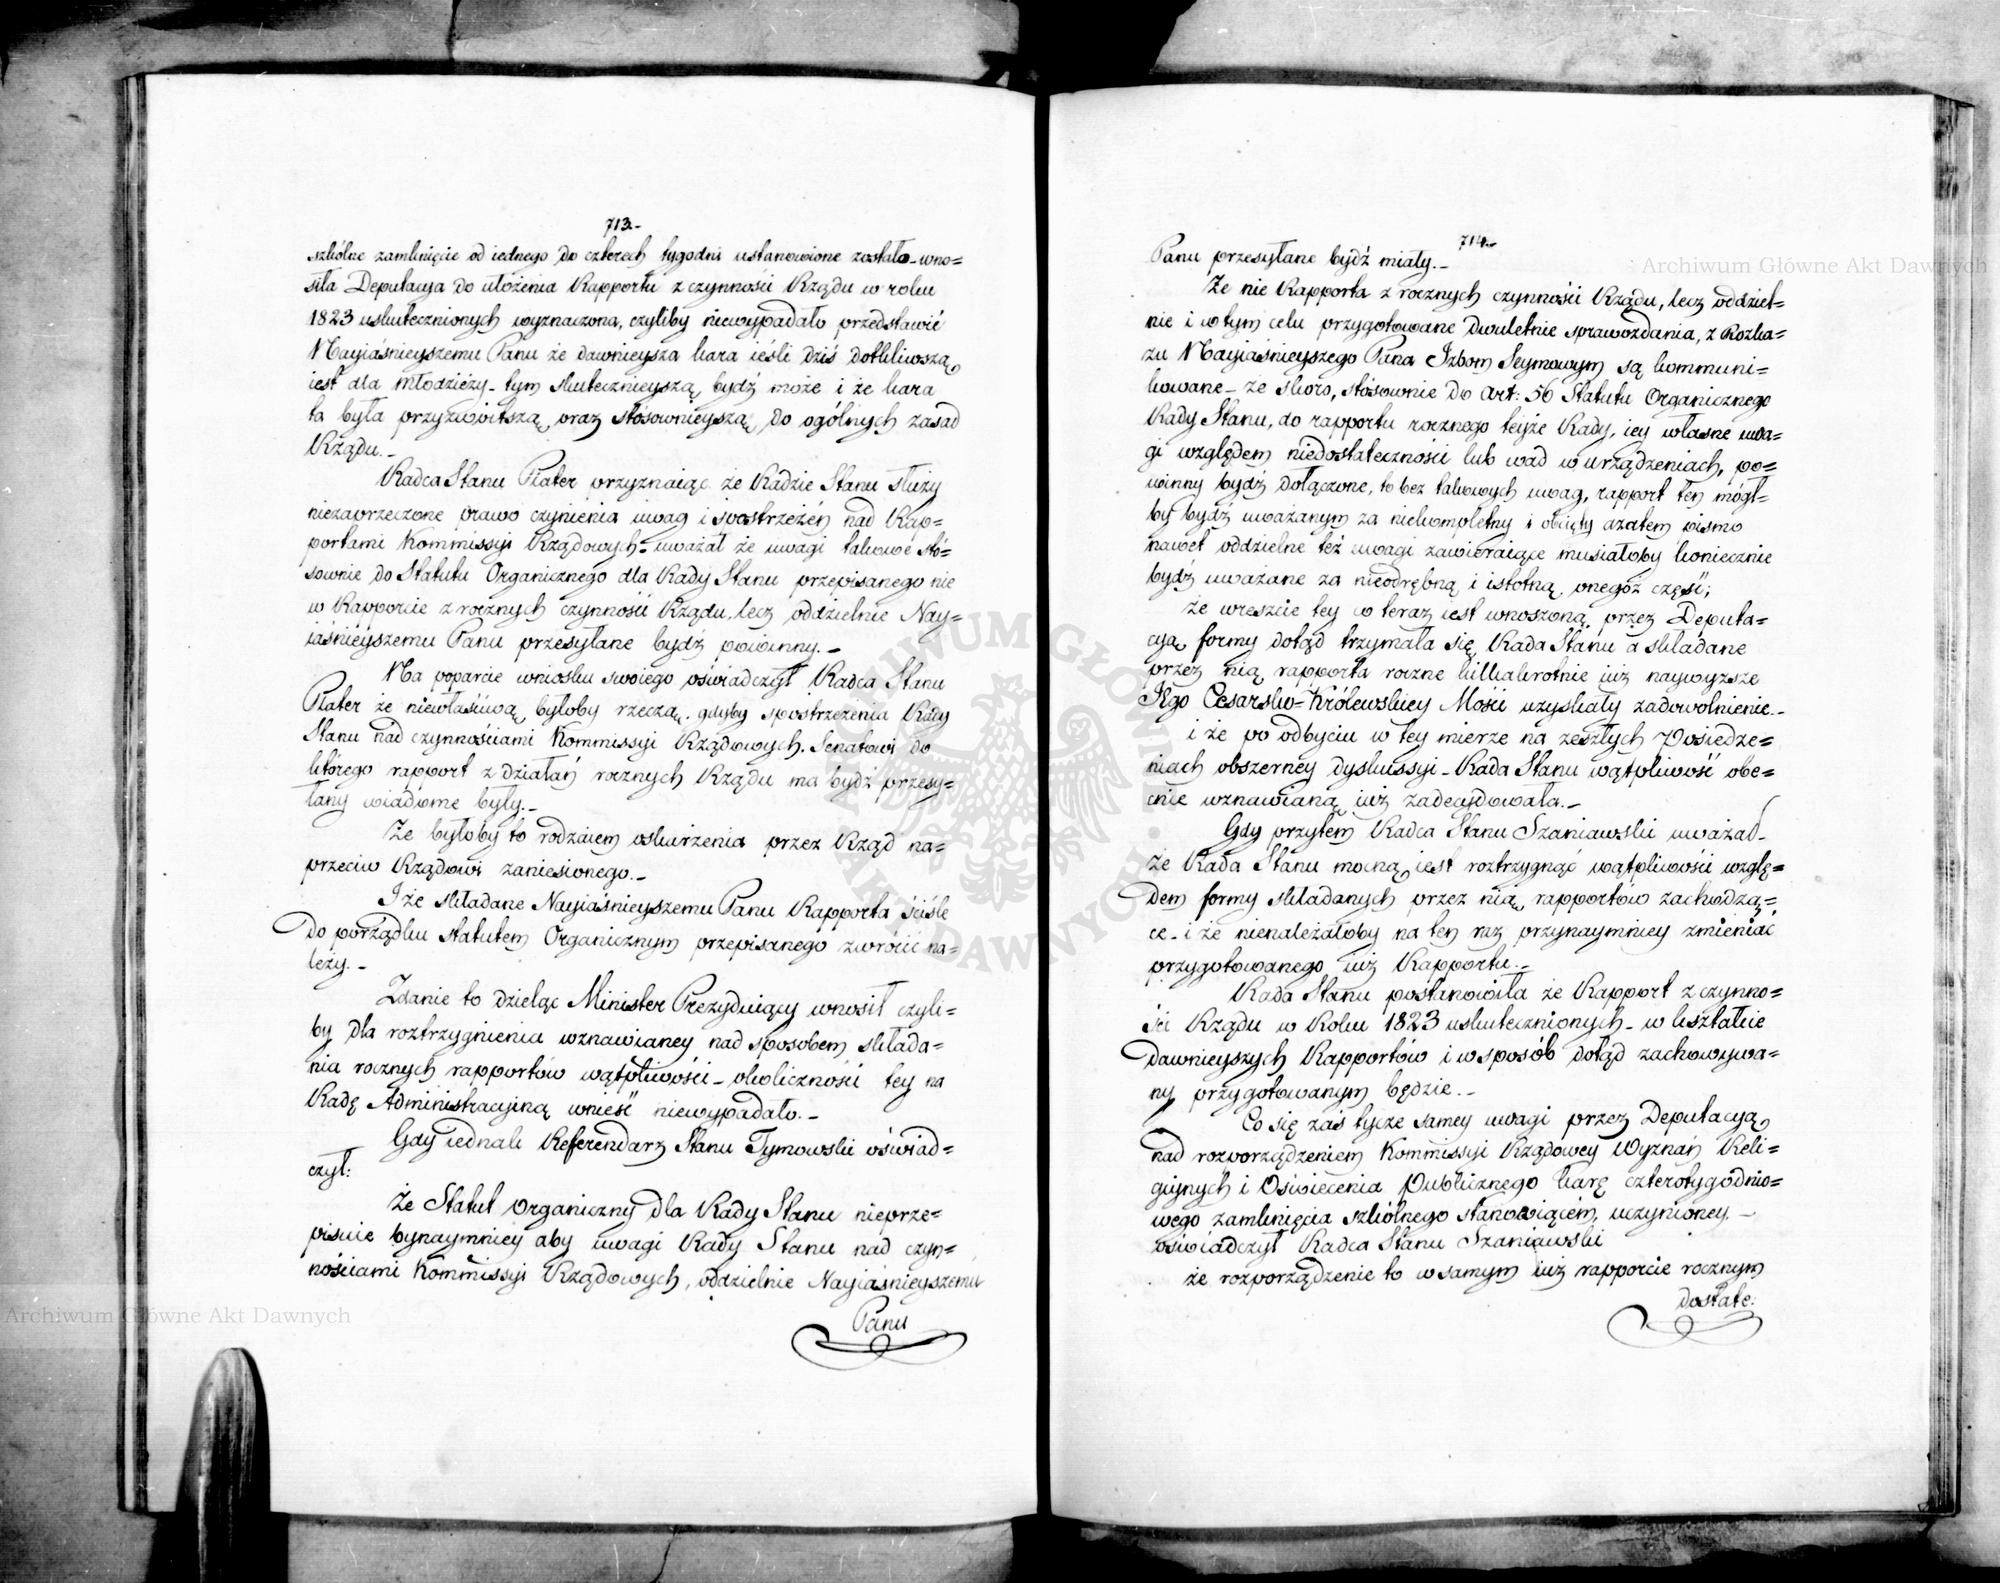 713.-
szkólne zamknięcie od iednego do czterech tygodni ustanowione zostało_wno=
siła Deputacya do ułożenia Rapportu z czynności Rządu w roku
1823 uskutecznionych wyznaczona, czyliby niewypadało przedstawić
Nayiaśnieyszemu Panu że dawnieysza kara ieśli dziś dotkliwszą
iest dla młodzieży_ tym skutecznieyszą bydź może i że kara
ta była przyzwoitszą oraz stósownieyszą do ogólnych zasad
Rządu._
Radca Stanu Plater przyznaiąc że Radzie Stanu służy
niezaprzeczone prawo czynienia uwag i spostrzeżeń nad Rap=
portami Kommissyi Rządowych_ uważał że uwagi takowe stó=
sownie do Statutu Organicznego dla Rady Stanu przepisanego nie
w Rapporcie z rocznych czynności Rządu, lecz oddzielnie Nay=
iaśnieyszemu Panu przesyłane bydź powinny._
Na poparcie wniosku swoiego oświadczył Radca Stanu
Plater że niewłaściwą byłoby rzeczą, gdyby spostrzeżenia Rady
Stanu nad czynnościami Kommissyi Rządowych, Senatowi do
którego rapport z działań rocznych Rządu ma bydź przesy=
łany wiadome były._
Że byłoby to rodzaiem oskarżenia przez Rząd na=
przeciw Rządowi zaniesionego._
I że składane Nayiaśnieyszemu Panu Rapporta ściśle
do porządku statutem Organicznym przepisanego zwrócić na=
leży._
Zdanie to dzieląc Minister Prezyduiący wnosił czyli=
by dla roztrzygnienia wznawianey nad sposobem składa=
nia rocznych rapportów wątpliwości_ okoliczności tey na
Radę Administracyiną wnieść niewypadało._
Gdy iednak Referendarz Stanu Tymowski oświad=
czył:
Że Statut Organiczny dla Rady Stanu nieprze=
pisuie bynaymniey aby uwagi Rady Stanu nad czyn=
nościami Kommissyi Rządowych, oddzielnie Nayiaśnieyszemu
Panu
714.-
Panu przesyłane bydź miały._
Że nie Rapporta z rocznych czynności Rządu, lecz oddziel=
nie i w tym celu przygotowane dwuletnie sprawozdania, z Rozka=
zu Nayiaśnieyszego Pana Izbom Seymowym są kommuni=
kowane_ że skoro, stósownie do art: 56 Statutu Organicznego
Rady Stanu, do rapportu rocznego teyże Rady, iey własne uwa=
gi względem niedostateczności lub wad w urządzeniach, po=
winny bydź dołączone, to bez takowych uwag, rapport ten mógł=
by bydź uważanym za niekompletny i obcięty azatem pismo
nawet oddzielne też uwagi zawieraiące musiałoby koniecznie
bydź uważane za nieodrębną i istotną onegoż część;
że wreszcie tey co teraz iest wnoszoną przez Deputa=
cyą formy dotąd trzymała się Rada Stanu a składane
przez nią rapporta roczne kilkakrotnie iuż naywyższe
Jego Cesarsko=Królewskiey Mości uzyskały zadowolnienie._
i że po odbyciu w tey mierze na zeszłych Posiedze=
niach obszerney dyskussyi_ Rada Stanu wątpliwość obe=
cnie wznawianą iuż zadecydowała._
Gdy przytem Radca Stanu Szaniawski uważał_
że Rada Stanu mocną iest roztrzygnąć wątpliwości wzglę=
dem formy składanych przez nią rapportów zachodzą=
ce_ i że nienależałoby na ten raz przynaymniey zmieniać
przygotowanego iuż Rapportu._
Rada Stanu postanowiła że Rapport z czynno=
ści Rządu w Roku 1823 uskutecznionych_ w kształcie
dawnieyszych Rapportów i w sposób dotąd zachowywa=
ny przygotowanym będzie._
Co się zaś tycze samey uwagi przez Deputacyą
nad rozporządzeniem Kommissyi Rządowey Wyznań Reli=
giynych i Oświecenia Publicznego karę czterotygodnio=
wego zamknięcia szkólnego stanowiącém, uczynioney._
oświadczył Radca Stanu Szaniawski
że rozporządzenie to w samym iuż rapporcie rocznym
dostate:
Archiwum Główne Akt Dawnych
Archiwum Główne Akt Dawnych
ARCHIWUM GŁÓWNE AKT DAWNYCH